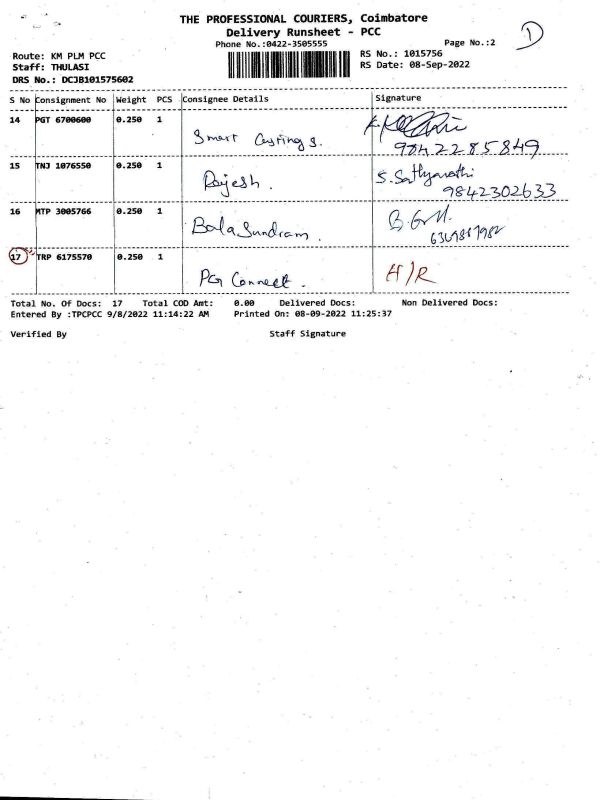 THE PROFESSIONAL COURIERS, Coimbatore
Delivery Runsheet - PCC
Phone No.:0422-3505555
Page No.:2
1
Route: KM PLM PCC
RS No.: 1015756
Staff: THULASI
RS Date: 08-Sep-2022
DRS No.: DCJB101575602
S No Consignment No Weight PCS Consignee Details Signature
14 PGT 6700600 0.250 1 Smart Castings. 9842285849
15 TNJ 1076550 0.250 1 Rajesh. S. Sathyavathi
9842302633
16 MTP 3005766 0.250 1 Bala Sundram.
17 TRP 6175570 0.250 1 PG Connect. H/R
Total No. Of Docs: 17 Total COD Amt: 0.00 Delivered Docs: Non Delivered Docs:
Entered By :TPCPCC 9/8/2022 11:14:22 AM Printed On: 08-09-2022 11:25:37
Verified By Staff Signature